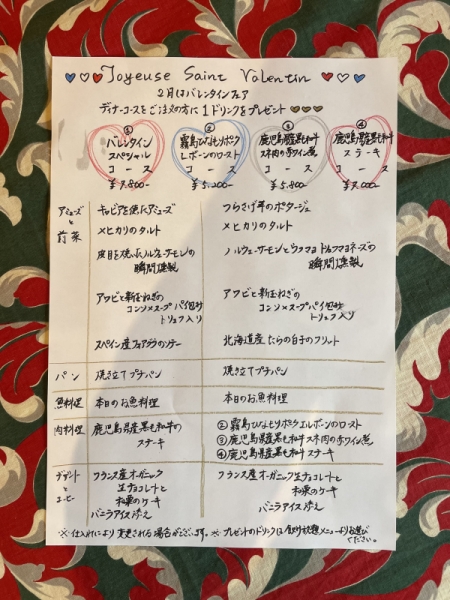 Joyeuse Saint Valentin
2月はバレンタインフェア
ディナーコースをご注文の方に1ドリンクをプレゼント
①
バレンタイン
スペシャル
コース
¥7.800-
②
霧島ひなもりポーク
Lボーンのロースト
コース
¥5.200-
③
鹿児島県産黒毛和牛
スネ肉の赤ワイン煮
コース
¥5.800-
④
鹿児島県産黒毛和牛
ステーキ
コース
¥7.000-
アミューズ
と
前菜
キャビアを使ったアミューズ
メヒカリのタルト
皮目を焼いたノルウェーサーモンの
瞬間燻製
アワビと新玉ねぎの
コンソメスープ パイ包み
トリュフ入り
スペイン産フォアグラのソテー
つらさげ芋のポタージュ
メヒカリのタルト
ノルウェーサーモンと
瞬間燻製
アワビと新玉ねぎの
コンソメスープ パイ包み
トリュフ入り
北海道産たらの白子のフリット
パン
焼き立てプチパン
焼き立てプチパン
魚料理
本日のお魚料理
本日のお魚料理
肉料理
鹿児島県産黒毛和牛の
ステーキ
②霧島ひなもりポークLボーンのロースト
③鹿児島県産黒毛和牛スネ肉の赤ワイン煮
④鹿児島県産黒毛和牛ステーキ
デザート
と
コーヒー
フランス産オーガニック
生チョコレートと
和栗のケーキ
バニラアイス添え
フランス産オーガニック生チョコレートと
和栗のケーキ
バニラアイス添え
※仕入れにより変更される場合がございます。※プレゼントのドリンクは飲み放題メニューよりお選び
ください。